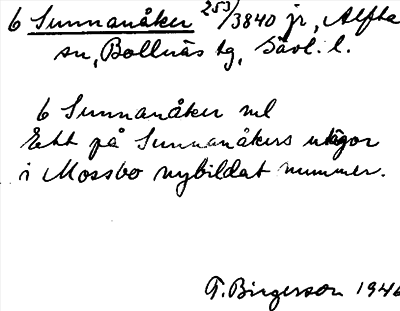 6 Sunnanåker 253/3840 jr, Alfta
sn, Bollnäs tg, Gävl. l.
6 Sunnanåker ml
Ett på Sunnanåkers utägor
i Mossbo nybildat nummer.
T. Birgerson 1946